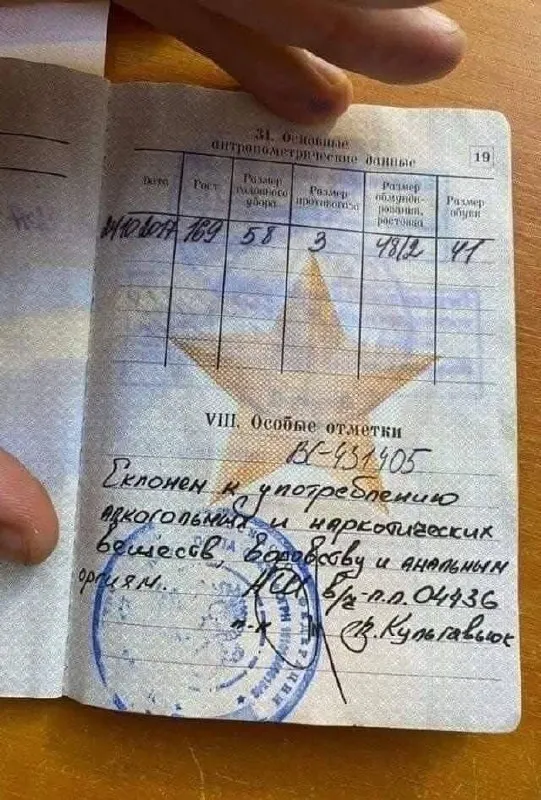 31. Основные
антропометрические данные
19
Дата
Рост
Размер головного убора
Размер противогаза
Размер обмундирования, ростовка
Размер обуви
169 58 3 48/2 41
VIII. Особые отметки
ВС-431405
Склонен к употреблению
алкогольных и наркотических
веществ, воровству и анальным
оргиям. НШ в/ч-п.п. 04436
п-к Кульгавьюк